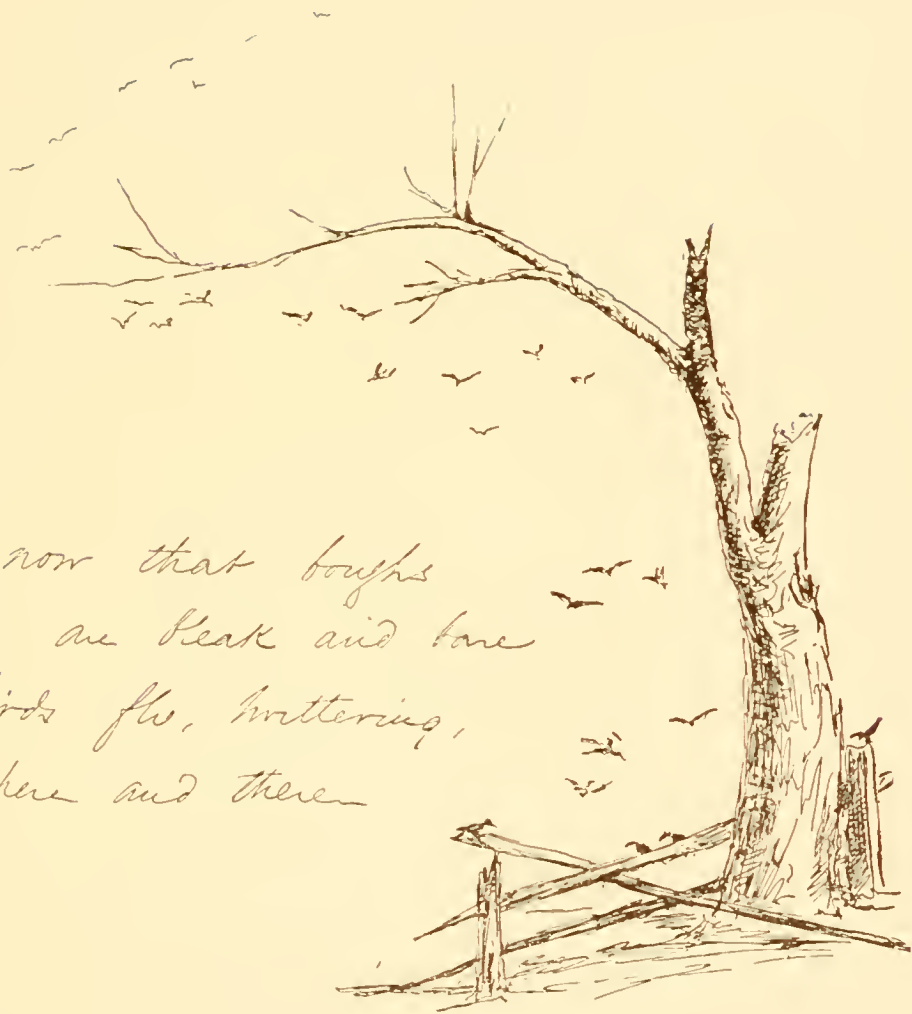 now that boughs
are bleak and bare
irds flit, twittering,
here and there